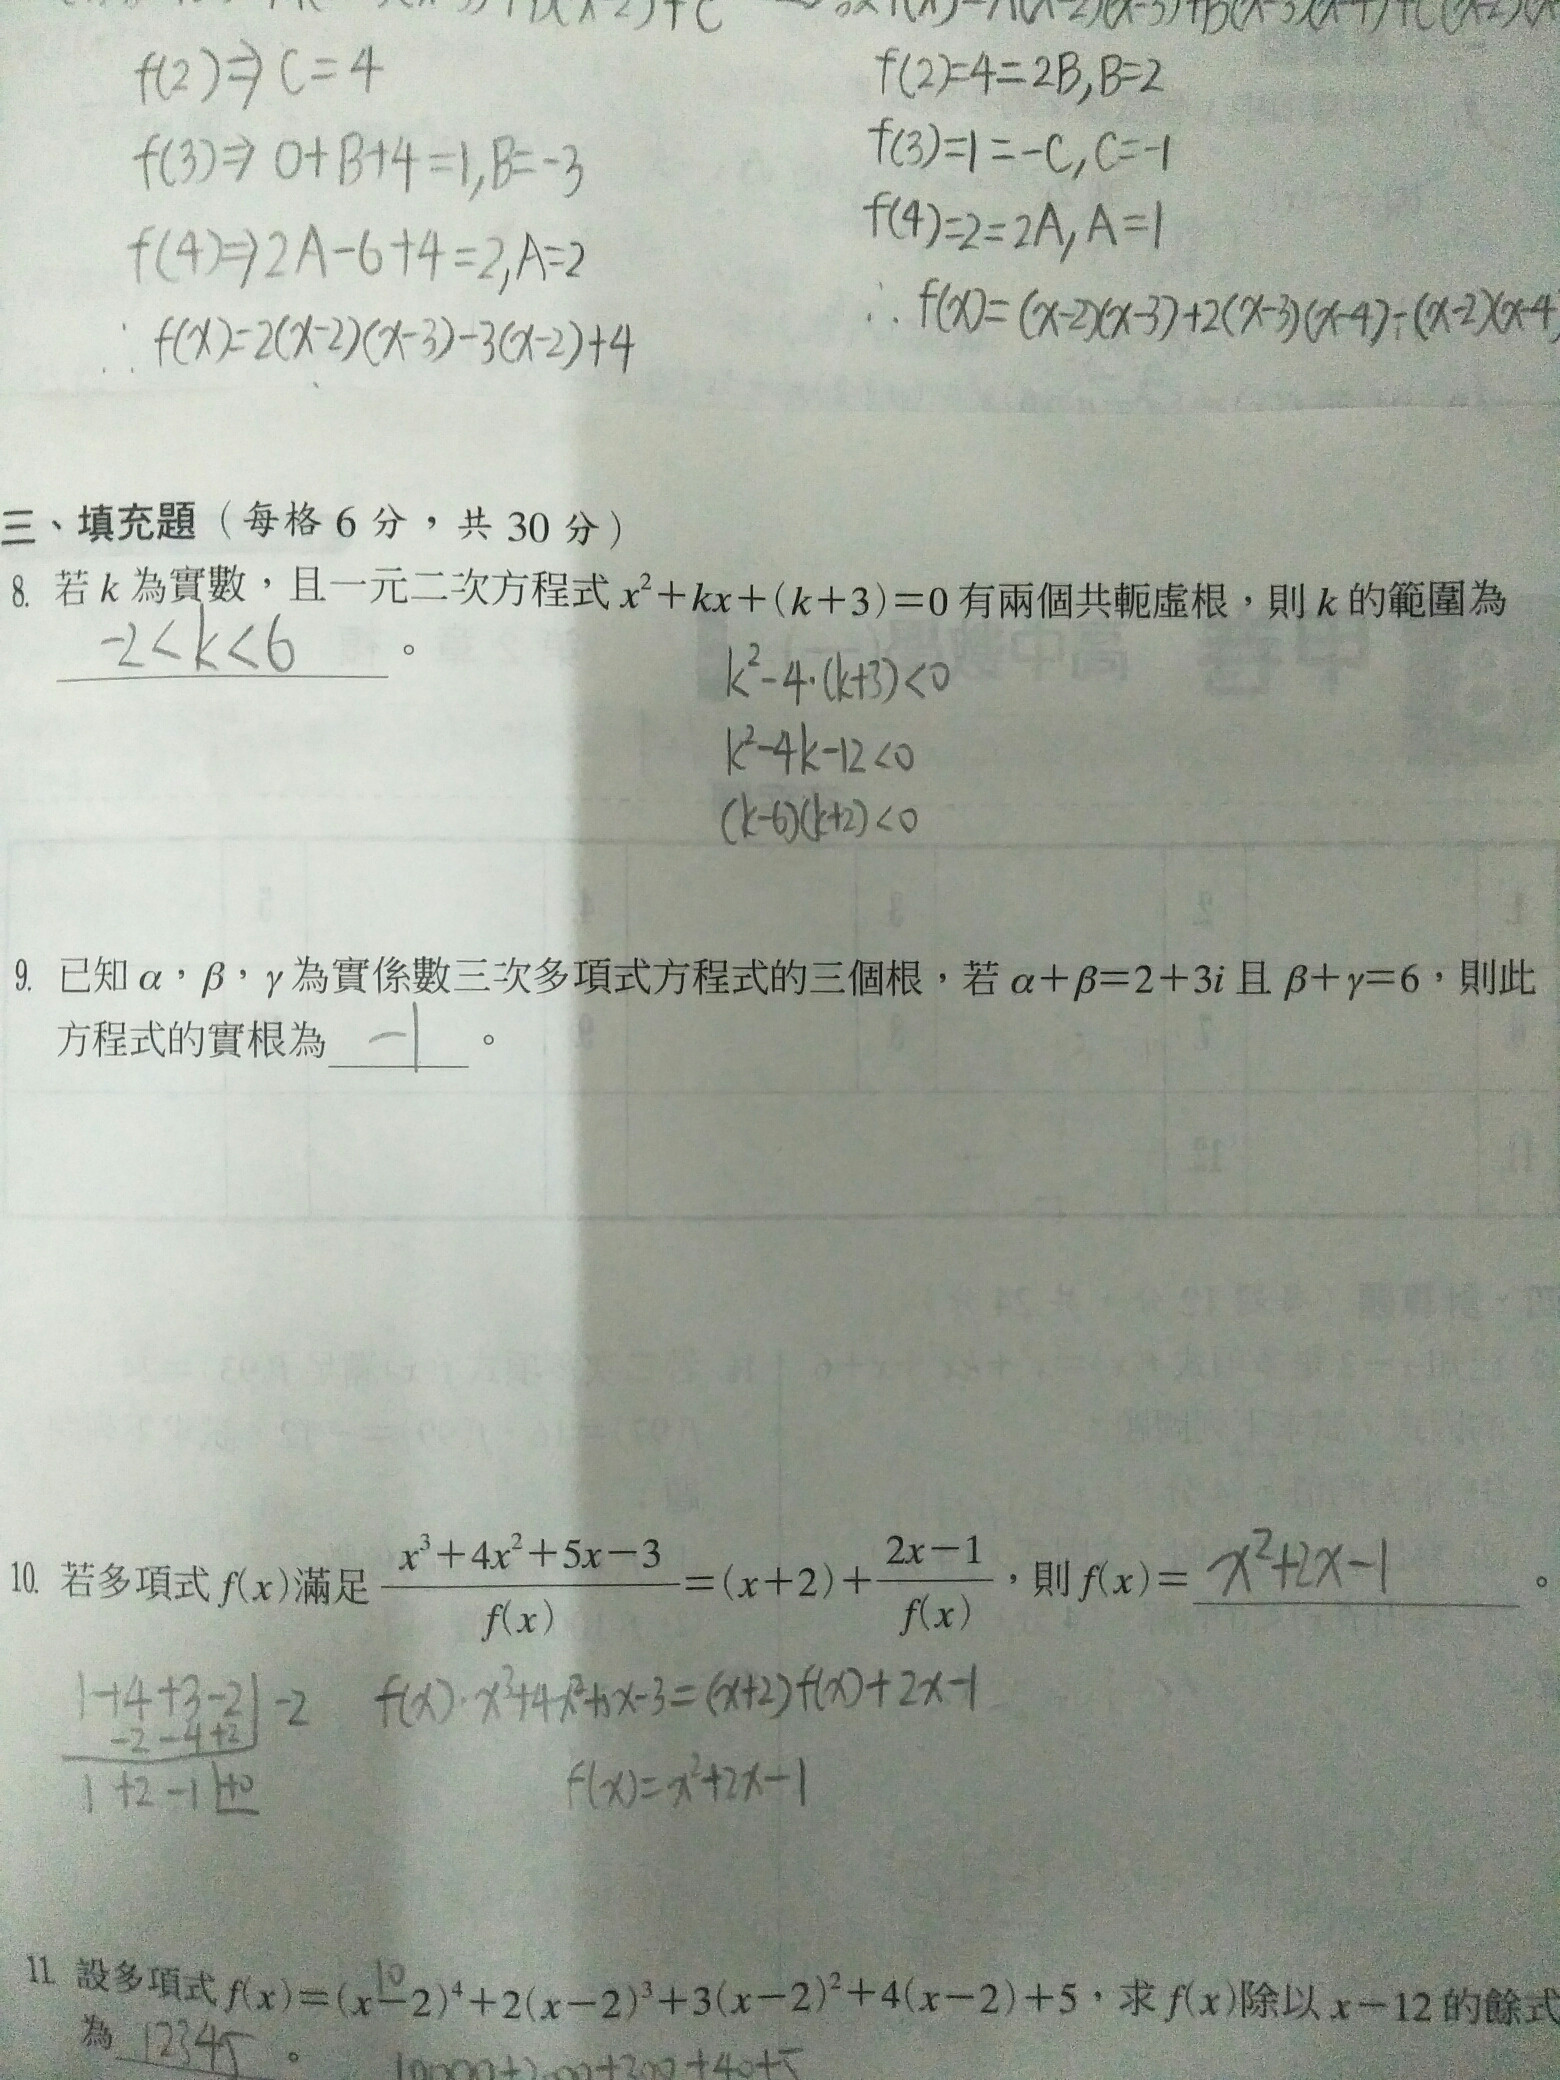 f(2)⇒ C=4
f(3)⇒ 0+B+4=1, B=-3
f(4)⇒ 2A-6+4=2, A=2
∴ f(x)=2(x-2)(x-3)-3(x-2)+4
f(2)=4=2B, B=2
f(3)=1=-C, C=-1
f(4)=2=2A, A=1
∴ f(x)=(x-2)(x-3)+2(x-3)(x-4)-(x-2)(x-4)
三、填充題（每格 6 分，共 30 分）
8. 若 k 為實數，且一元二次方程式 x²+kx+(k+3)=0 有兩個共軛虛根，則 k 的範圍為
-2<k<6 。
k²-4·(k+3)<0
k²-4k-12<0
(k-6)(k+2)<0
9. 已知 α，β，γ 為實係數三次多項式方程式的三個根，若 α+β=2+3i 且 β+γ=6，則此
方程式的實根為 -1 。
10. 若多項式 f(x) 滿足 (x³+4x²+5x-3)/f(x) = (x+2) + (2x-1)/f(x)，則 f(x)= x²+2x-1 。
1+4+3-2 | -2
-2-4+2
1+2-1 | +0
f(x)· x³+4x²+5x-3=(x+2)f(x)+2x-1
f(x)=x²+2x-1
11. 設多項式 f(x)=(x-2)⁴+2(x-2)³+3(x-2)²+4(x-2)+5，求 f(x) 除以 x-12 的餘式
10
為 12345 。